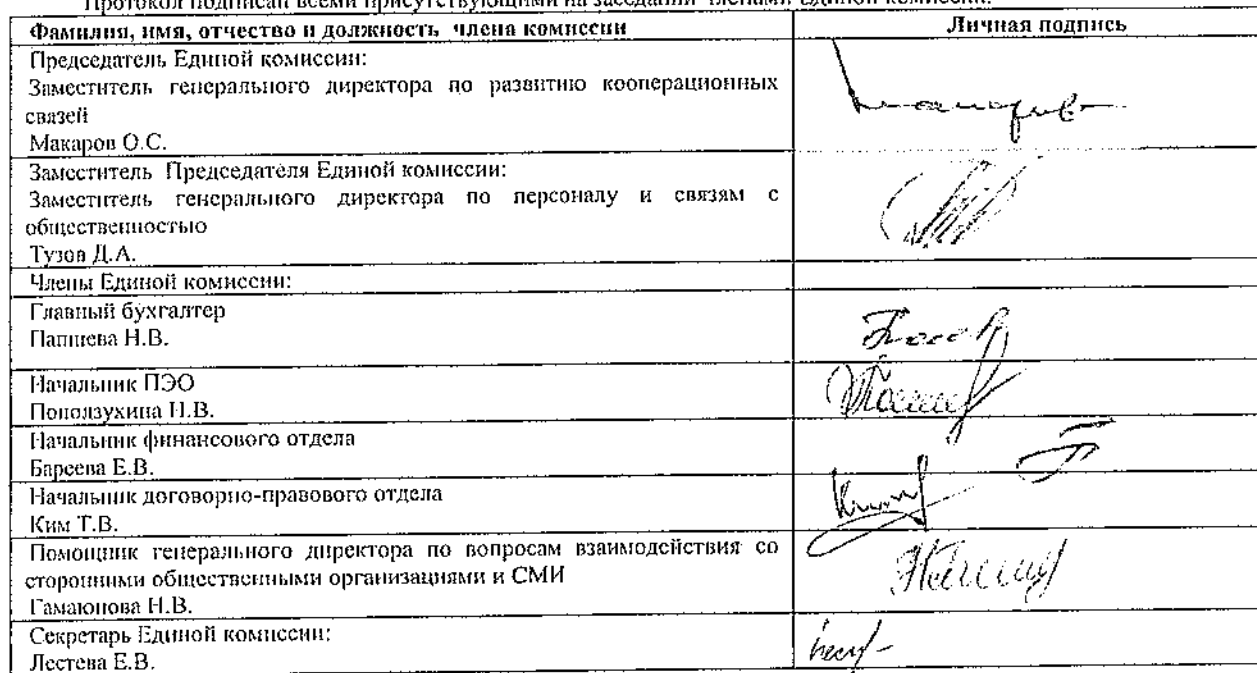 Протокол подписан всеми присутствующими на заседании членами Единой комиссии.
Фамилия, имя, отчество и должность члена комиссии
Личная подпись
Председатель Единой комиссии:
Заместитель генерального директора по развитию кооперационных
связей
Макаров О.С.
Заместитель Председателя Единой комиссии:
Заместитель генерального директора по персоналу и связям с
общественностью
Тузов Д.А.
Члены Единой комиссии:
Главный бухгалтер
Папшева Н.В.
Начальник ПЭО
Поползухина Н.В.
Начальник финансового отдела
Бареева Е.В.
Начальник договорно-правового отдела
Ким Т.В.
Помощник генерального директора по вопросам взаимодействия со
сторонними общественными организациями и СМИ
Гамаюнова Н.В.
Секретарь Единой комиссии:
Лестева Е.В.